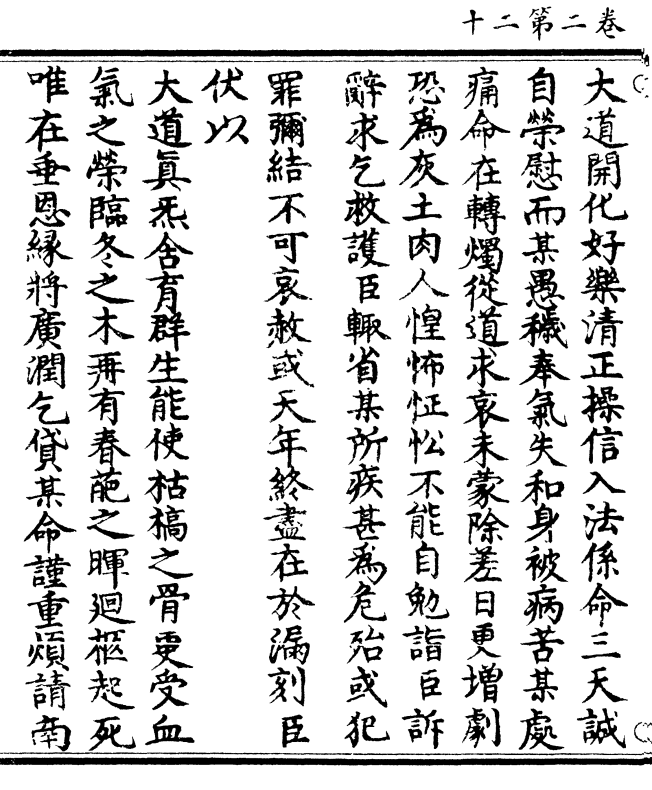 卷二第二十
大道開化好樂清正操信入法係命三天誠
自榮慰而某愚穢奉氣失和身被病苦某處
痛命在轉燭從道求哀未蒙除差日更增劇
恐為灰土肉人惶怖怔忪不能自勉詣臣訴
辭求乞救護臣輒省某所疾甚為危殆或犯
罪彌結不可哀赦或天年終盡在於漏刻臣
伏以
大道真炁含育群生能使枯槁之骨更受血
氣之榮臨冬之木再有春葩之暉廻柩起死
唯在垂恩緣將廣潤乞貸某命謹重煩請南